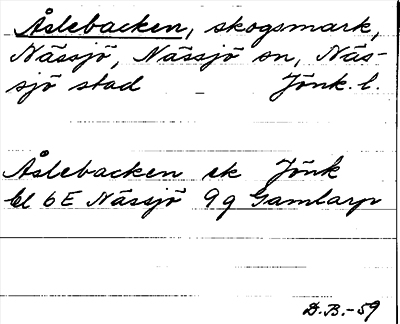 Åslebacken, skogsmark,
Nässjö, Nässjö sn, Näs-
sjö stad - Jönk. l.
Åslebacken ek Jönk
bl 6E Nässjö 9g Gamlarp
D.B.-59